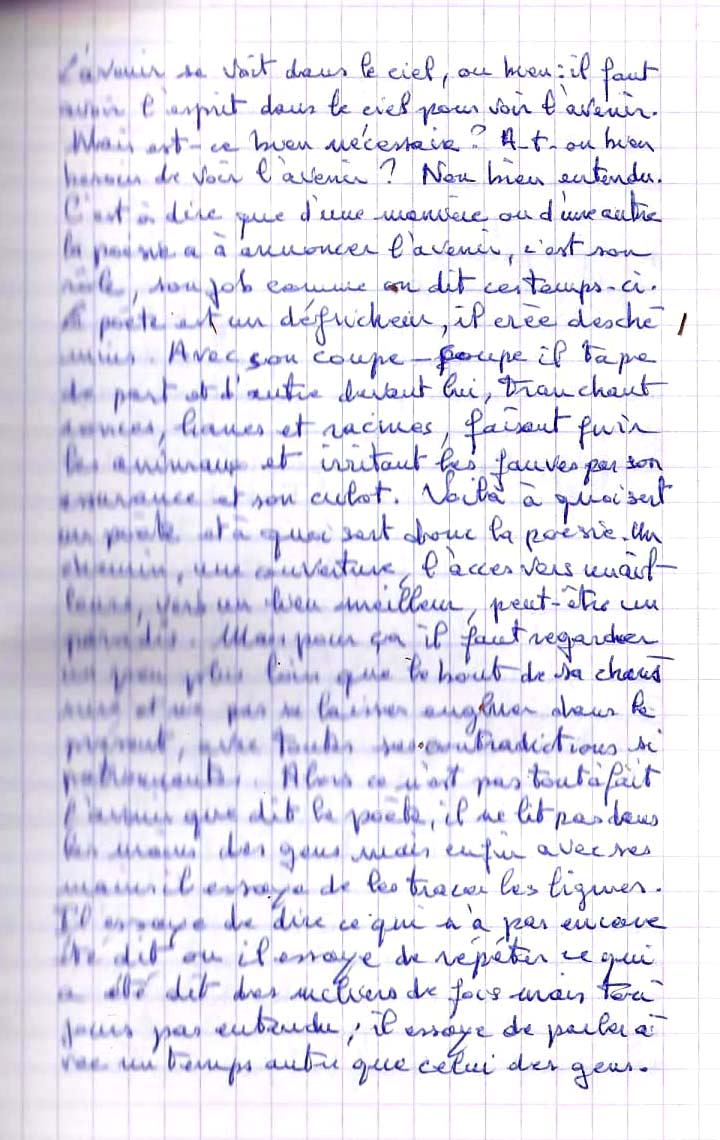 L'avenir se voit dans le ciel, ou bien : il faut
avoir l'esprit dans le ciel pour voir l'avenir.
Mais est-ce bien nécessaire ? A-t-on bien
besoin de voir l'avenir ? Non bien entendu.
C'est à dire que d'une manière ou d'une autre
la poésie a à annoncer l'avenir, c'est son
rôle, son job comme on dit ces temps-ci.
Le poète est un défricheur, il crée des che
mins. Avec son coupe-coupe il tape
de part et d'autre devant lui, tranchant
ronces, lianes et racines, faisant fuir
les animaux et irritant les fauves par son
assurance et son culot. Voilà à quoi sert
un poète et à quoi sert donc la poésie. Un
chemin, une ouverture, l'accès vers un ail-
leurs, vers un lieu meilleur, peut-être un
paradis. Mais pour ça il faut regarder
un peu plus loin que le bout de sa chaus
sure et ne pas se laisser engluer dans le
présent, avec toutes ses contradictions si
Alors ce n'est pas tout à fait
l'avenir que dit le poète, il ne lit pas dans
les mains des gens mais enfin avec ses
mains il essaye de les tracer les lignes.
Il essaye de dire ce qui n'a pas encore
été dit ou il essaye de répéter ce qui
a été dit des milliers de fois mais tou
jours pas entendu, il essaye de parler a
vec un temps autre que celui des gens.